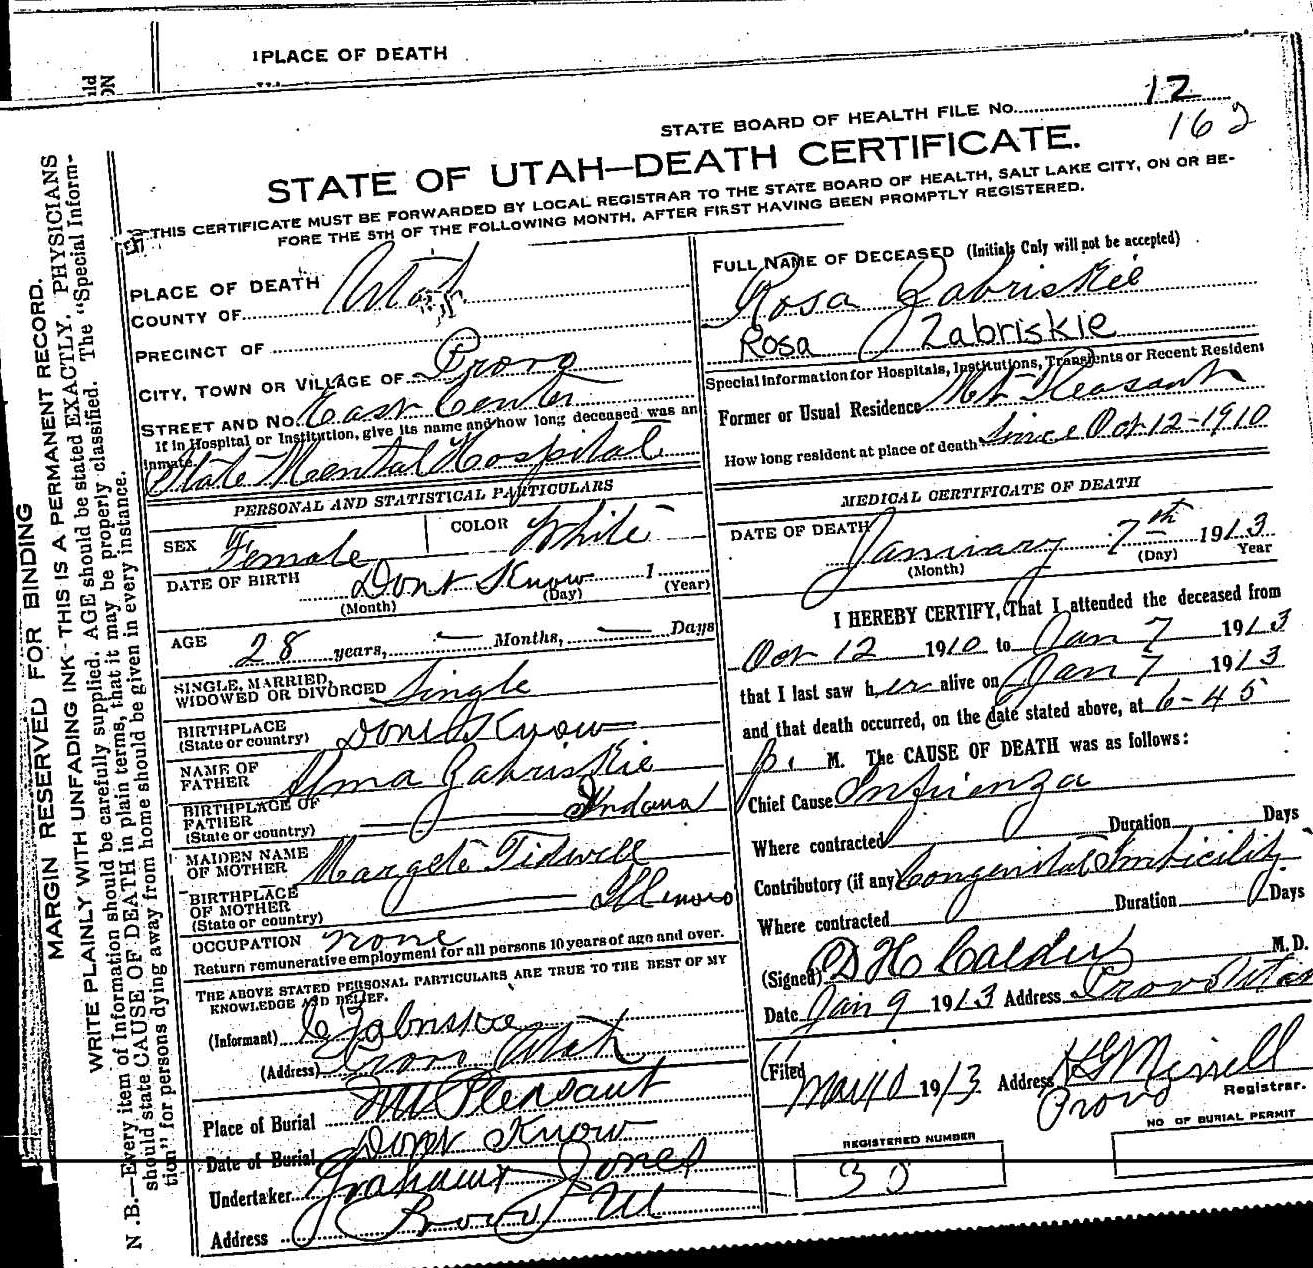 1PLACE OF DEATH
STATE BOARD OF HEALTH FILE No. 12
162
STATE OF UTAH—DEATH CERTIFICATE.
THIS CERTIFICATE MUST BE FORWARDED BY LOCAL REGISTRAR TO THE STATE BOARD OF HEALTH, SALT LAKE CITY, ON OR BE-
FORE THE 5TH OF THE FOLLOWING MONTH, AFTER FIRST HAVING BEEN PROMPTLY REGISTERED.
MARGIN RESERVED FOR BINDING
WRITE PLAINLY WITH UNFADING INK—THIS IS A PERMANENT RECORD.
N.B.—Every item of Information should be carefully supplied. AGE should be stated EXACTLY. PHYSICIANS
should state CAUSE OF DEATH in plain terms, that it may be properly classified. The "Special Inform-
tion" for persons dying away from home should be given in every instance.
PLACE OF DEATH
COUNTY OF Utah
PRECINCT OF
CITY, TOWN OR VILLAGE OF Provo
STREET AND No. East Center
If in Hospital or Institution, give its name and how long deceased was an
inmate.
State Mental Hospital
PERSONAL AND STATISTICAL PARTICULARS
SEX Female COLOR White
DATE OF BIRTH Dont Know 1
(Month) (Day) (Year)
AGE 28 years, — Months, — Days
SINGLE, MARRIED,
WIDOWED OR DIVORCED Single
BIRTHPLACE
(State or country) Dont Know
NAME OF
FATHER Alma Zabriskie
BIRTHPLACE OF
FATHER
(State or country) Indana
MAIDEN NAME
OF MOTHER Margete Tidwell
BIRTHPLACE
OF MOTHER
(State or country) Illenois
OCCUPATION None
Return remunerative employment for all persons 10 years of age and over.
THE ABOVE STATED PERSONAL PARTICULARS ARE TRUE TO THE BEST OF MY
KNOWLEDGE AND BELIEF.
(Informant) C Zabriskie
(Address) Provo Utah
Place of Burial Mt Pleasant
Date of Burial Dont Know
Undertaker Graham Jones
Address Provo Ut
FULL NAME OF DECEASED (Initials Only will not be accepted)
Rosa Zabriskie
Rosa Zabriskie
Special Information for Hospitals, Institutions, Transients or Recent Resident
Former or Usual Residence Mt Pleasant
How long resident at place of death Since Oct 12-1910
MEDICAL CERTIFICATE OF DEATH
DATE OF DEATH
January 7th 1913
(Month) (Day) Year
I HEREBY CERTIFY, That I attended the deceased from
Oct 12 1910 to Jan 7 1913
that I last saw her alive on Jan 7 1913
and that death occurred, on the date stated above, at 6-45
p. M. The CAUSE OF DEATH was as follows:
Chief Cause Influenza
Where contracted Duration Days
Contributory (if any) Congenital Imbicility
Where contracted Duration Days
(Signed) D H Calder M.D.
Date Jan 9 1913 Address Provo Utah
Filed May 10 1913 Address
Registrar.
Provo
REGISTERED NUMBER
30
NO OF BURIAL PERMIT